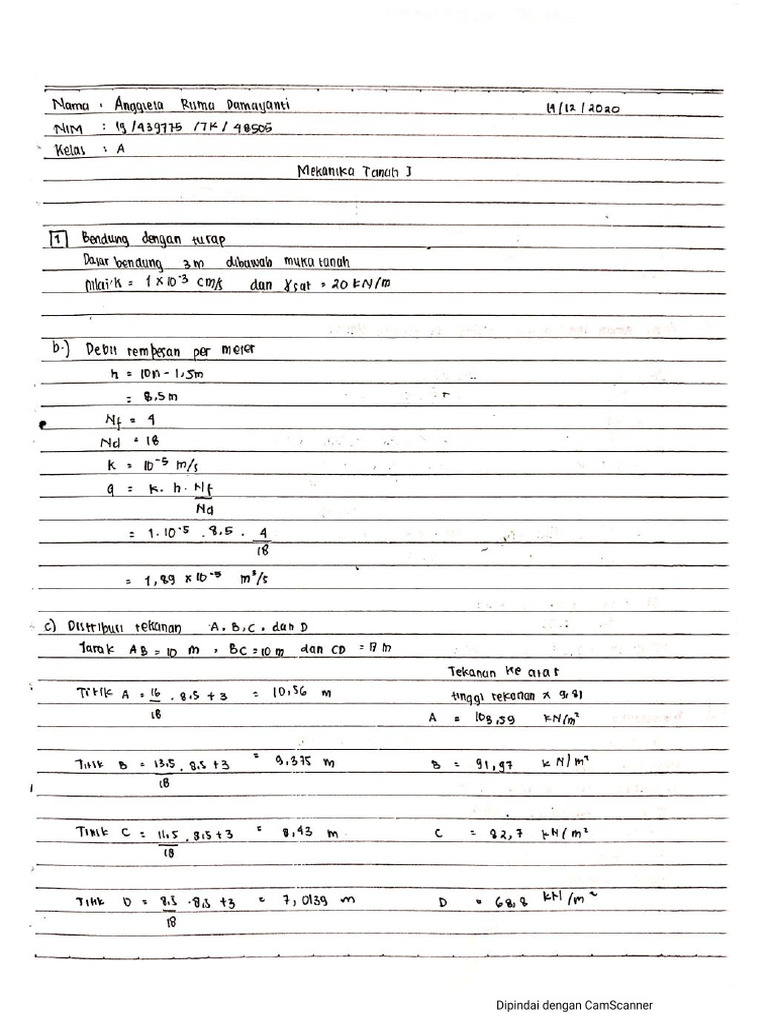 Nama : Anggieta Risma Damayanti 14/12/2020
NIM : 19/439775/TK/48505
Kelas : A
Mekanika Tanah I
1 Bendung dengan turap
Dasar bendung 3 m dibawah muka tanah
Nilai k = 1 × 10⁻³ cm/s dan γsat = 20 kN/m
b.) Debit rembesan per meter
h = 10m - 1,5m
= 8,5m
Nf = 4
Nd = 18
k = 10⁻⁵ m/s
q = k. h. Nf/Nd
= 1.10⁻⁵ . 8,5 . 4/18
= 1,89 × 10⁻⁵ m³/s
c) Distribusi tekanan A, B, C, dan D
Jarak AB = 10 m , BC = 10 m dan CD = 17 m
Tekanan ke atas
Titik A = 16/18 . 8.5 + 3 = 10,56 m tinggi tekanan × 9,81
A = 103,59 kN/m²
Titik B = 13.5/18 . 8.5 + 3 = 9,375 m B = 91,97 kN/m²
Titik C = 11.5/18 . 8.5 + 3 = 8,43 m C = 82,7 kN/m²
Titik D = 8.5/18 . 8.5 + 3 = 7,0139 m D = 68,8 kN/m²
Dipindai dengan CamScanner